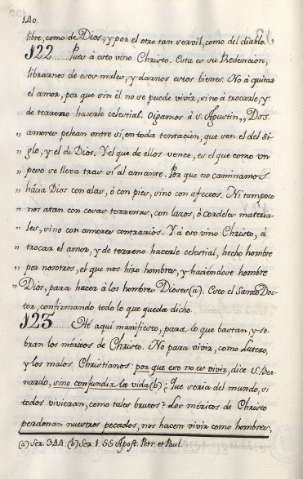 140.
libre, como de Dios, y por el otro tan servil, como del diablo.
§122 Pues á esto vino Christo. Esta es su Redencion,
librarnos de esos males, y darnos estos bienes. No á quitar
el amor, por que sin él no se puede vivir, sino á trocarlo, y
de terreno hacerlo celestial. Oigamos á S. Agustin „ Dos
„ amores pelean entre sí, en toda tentacion, que son el del si-
„ glo, y el de Dios. Y el que de ellos vence, es el que como un
„ peso se lleva tras sí al amante. Por que no caminamos
„ hácia Dios con alas, ó con pies, sino con afectos. Ni tampoco
„ nos atan con cosas terrenas, con lazos, ó cordeles materia-
„ les, sino con amores contrarios. Y á eso vino Christo, á
„ trocar el amor, y de terreno hacerle celestial, hecho hombre
„ por nosotros, el que nos hizo hombres, y haciéndose hombre
„ Dios, para hacer á los hombres Dioses (a). Esto el Santo Doc-
tor, confirmando todo lo que queda dicho.
§123 He aquí manifiesto, para lo que bastan, y so-
bran los méritos de Christo. No para vivir, como Lutero,
y los malos Christianos: porque eso no es vivir, dice S. Ber-
nardo, sino confundir la vida (b); Que seria del mundo, si
todos vivieran, como tales brutos? Los méritos de Christo
perdonan nuestros pecados, nos hacen vivir como hombres,
(a) Ser. 344. (b) Ser. 1. SS Apost. Petr. et Paul.